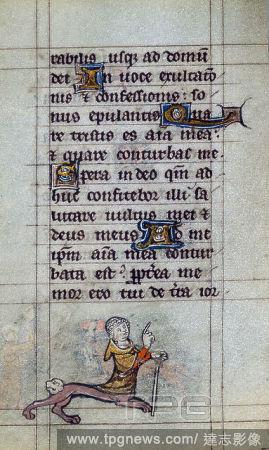 rabilis usq; ad domū
dei In uoce exultacō
nis & confessionis: so
nus epulantis Qua
re tristis es aīa mea:
& quare conturbas me.
Spera in deo qm̄ ad
huc confitebor illi sa
lutare uultus mei &
deus meus Ad me
ip̄m aīa mea contur
bata est: p̄pt̄ea me
mor ero tui de t̄ra ior
TPG
www.tpgnews.com / 達志影像